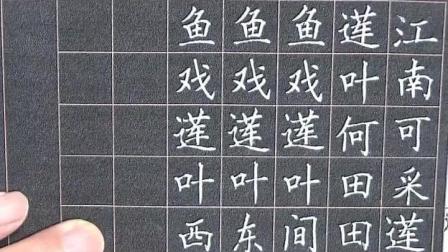 江南可采莲
莲叶何田田
鱼戏莲叶间
鱼戏莲叶东
鱼戏莲叶西